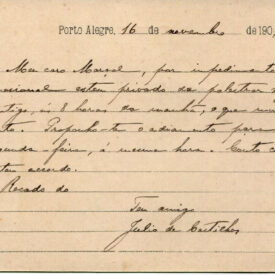 Porto Alegre, 16 de novembro de 190
Meu caro Marçal, por impedimento
estou privado de palestrar
tigo, ás 8 horas da manhã, o que
to. Proponho-te o adiamento para
unda feira, á mesma hora. Conto
teu accordo.
Recado do
Teu amigo
Julio de Castilhos